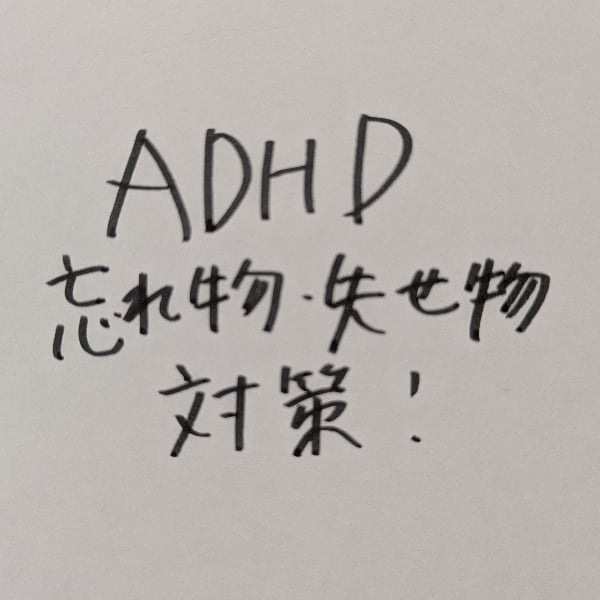 ADHD
忘れ物・失せ物
対策！